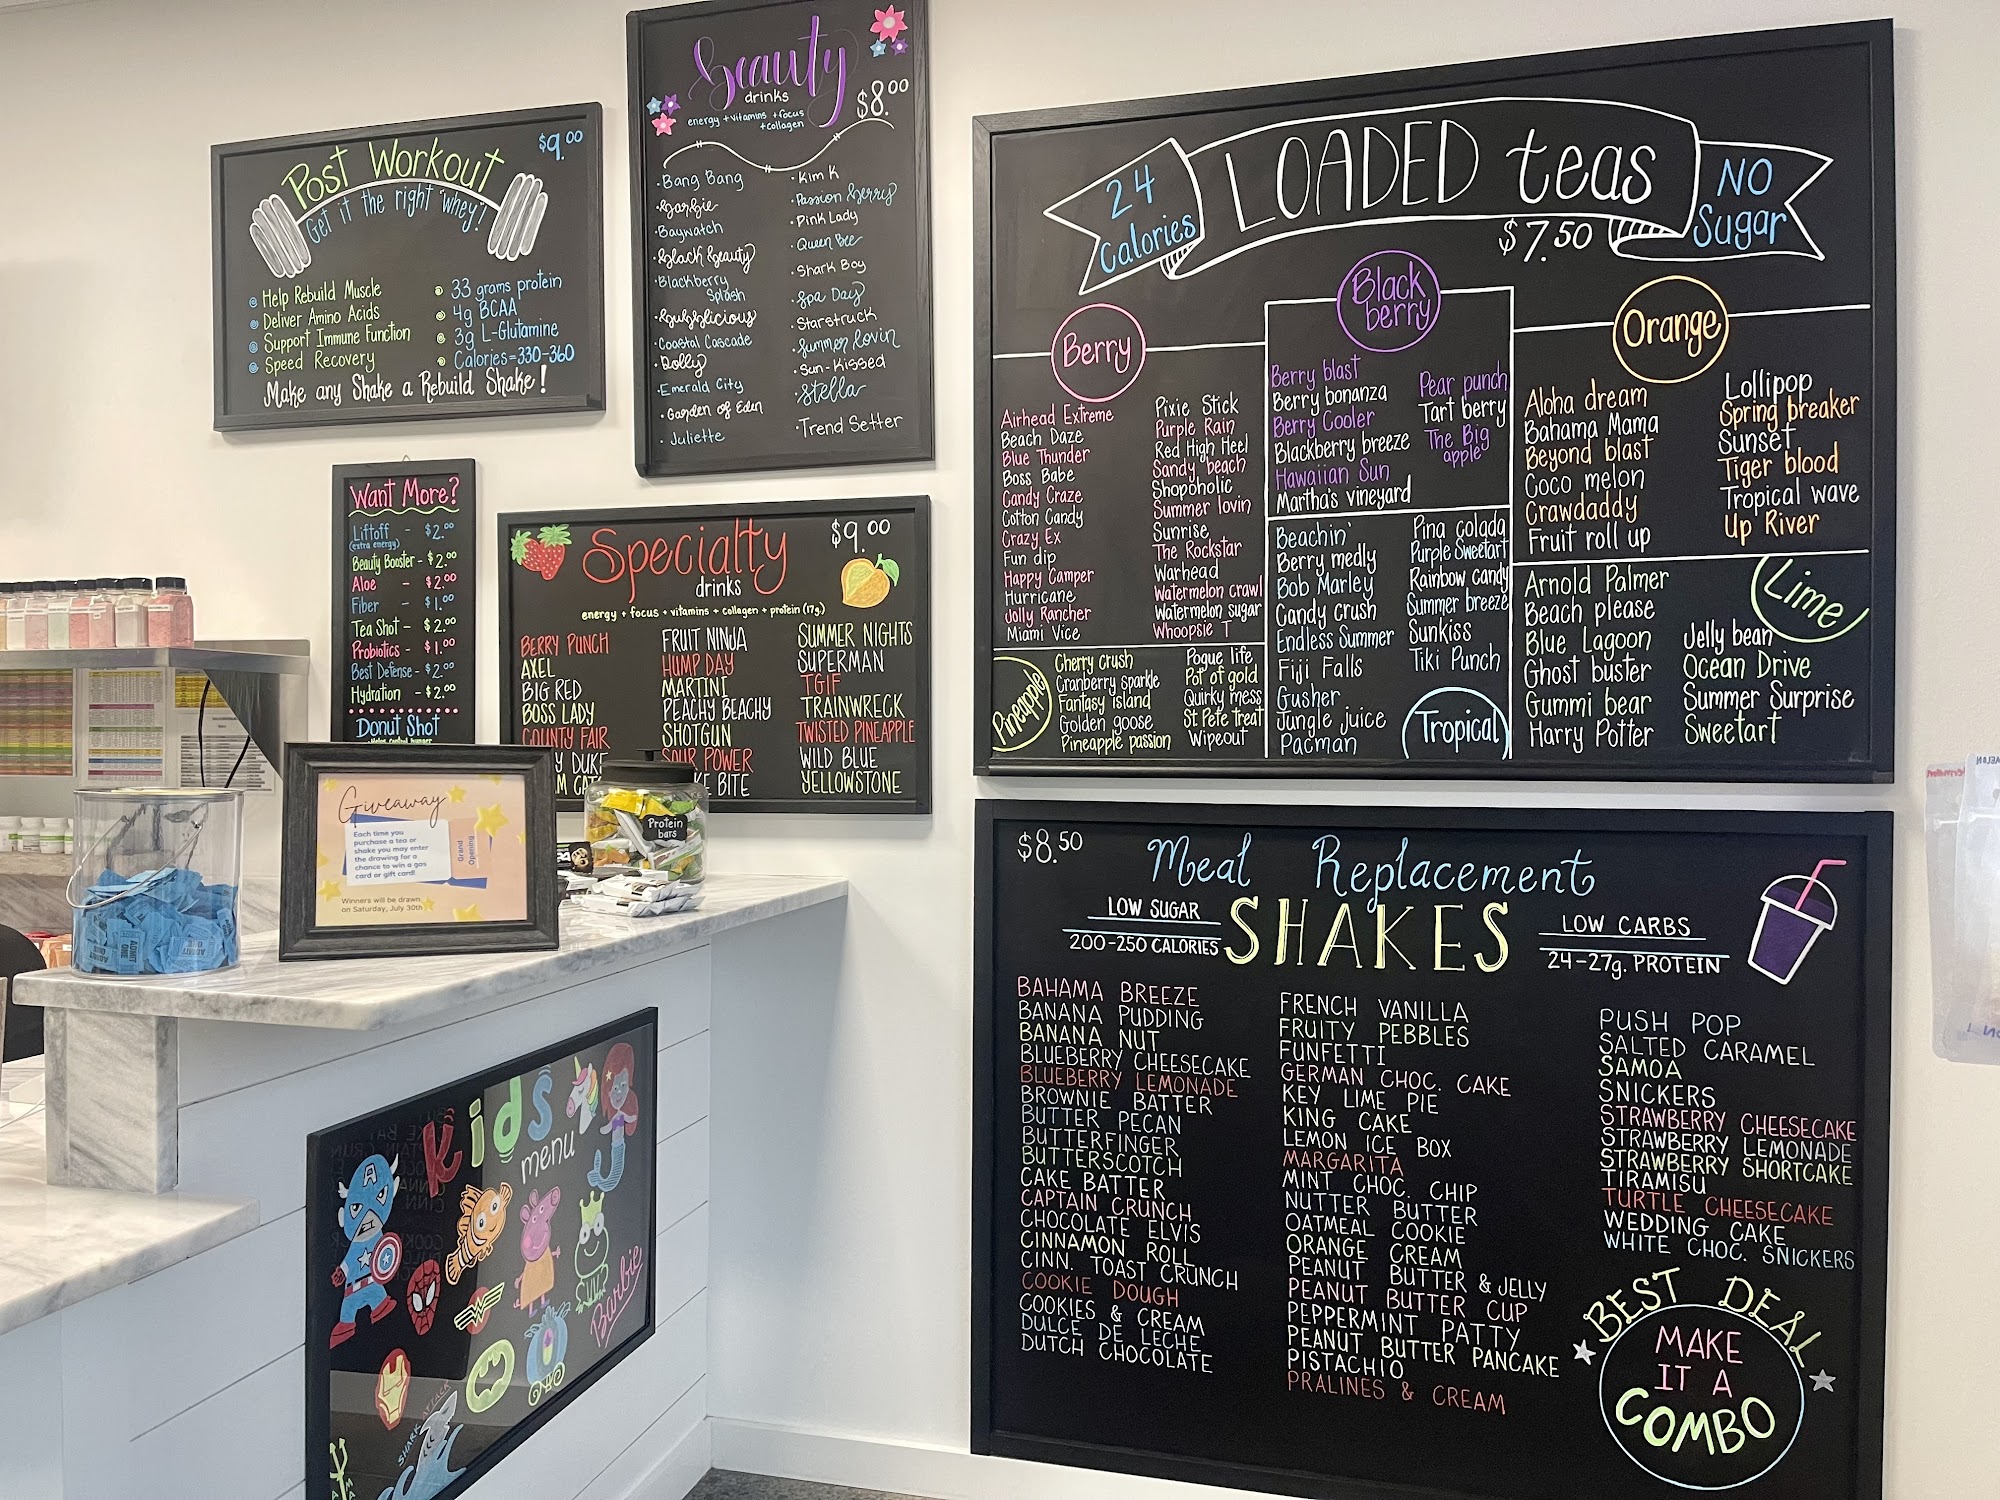 Post Workout
$9.00
Get it the right "whey!"
Help Rebuild Muscle
Deliver Amino Acids
Support Immune Function
Speed Recovery
33 grams protein
4g BCAA
3g L-Glutamine
Calories=330-360
Make any Shake a Rebuild Shake!
Beauty
drinks
$8.00
energy + vitamins + focus
+collagen
Bang Bang
Barbie
Baywatch
Black Beauty
Blackberry
Splash
Bubblicious
Coastal Cascade
Dolly
Emerald City
Garden of Eden
Juliette
Kim K
Passion Berry
Pink Lady
Queen Bee
Shark Boy
Spa Day
Starstruck
Summer Lovin
Sun-Kissed
Stella
Trend Setter
Want More?
Liftoff - $2.00
(extra energy)
Beauty Booster - $2.00
Aloe - $2.00
Fiber - $1.00
Tea Shot - $2.00
Probiotics - $1.00
Best Defense - $2.00
Hydration - $2.00
Donut Shot
Helps control hunger
Specialty
drinks
$9.00
energy + focus + vitamins + collagen + protein (17g.)
BERRY PUNCH
AXEL
BIG RED
BOSS LADY
COUNTY FAIR
DUKE
FRUIT NINJA
HUMP DAY
MARTINI
PEACHY BEACHY
SHOTGUN
SOUR POWER
BITE
SUMMER NIGHTS
SUPERMAN
TGIF
TRAINWRECK
TWISTED PINEAPPLE
WILD BLUE
YELLOWSTONE
24
Calories
LOADED teas
$7.50
NO
Sugar
Berry
Airhead Extreme
Beach Daze
Blue Thunder
Boss Babe
Candy Craze
Cotton Candy
Crazy Ex
Fun dip
Happy Camper
Hurricane
Jolly Rancher
Miami Vice
Pixie Stick
Purple Rain
Red High Heel
Sandy beach
Shopoholic
Summer lovin
Sunrise
The Rockstar
Warhead
Watermelon crawl
Watermelon sugar
Whoopsie T
Black
berry
Berry blast
Berry bonanza
Berry Cooler
Blackberry breeze
Hawaiian Sun
Martha's vineyard
Pear punch
Tart berry
The Big
apple
Orange
Aloha dream
Bahama Mama
Beyond blast
Coco melon
Crawdaddy
Fruit roll up
Lollipop
Spring breaker
Sunset
Tiger blood
Tropical wave
Up River
Pineapple
Cherry crush
Cranberry sparkle
Fantasy island
Golden goose
Pineapple passion
Pogue life
Pot of gold
Quirky mess
St Pete treat
Wipeout
Beachin'
Berry medly
Bob Marley
Candy crush
Endless Summer
Fiji Falls
Gusher
Jungle juice
Pacman
Pina colada
Purple Sweetart
Rainbow candy
Summer breeze
Sunkiss
Tiki Punch
Tropical
Lime
Arnold Palmer
Beach please
Blue Lagoon
Ghost buster
Gummi bear
Harry Potter
Jelly bean
Ocean Drive
Summer Surprise
Sweetart
$8.50
Meal Replacement
SHAKES
LOW SUGAR
200-250 CALORIES
LOW CARBS
24-27g. PROTEIN
BAHAMA BREEZE
BANANA PUDDING
BANANA NUT
BLUEBERRY CHEESECAKE
BLUEBERRY LEMONADE
BROWNIE BATTER
BUTTER PECAN
BUTTERFINGER
BUTTERSCOTCH
CAKE BATTER
CAPTAIN CRUNCH
CHOCOLATE ELVIS
CINNAMON ROLL
CINN. TOAST CRUNCH
COOKIE DOUGH
COOKIES & CREAM
DULCE DE LECHE
DUTCH CHOCOLATE
FRENCH VANILLA
FRUITY PEBBLES
FUNFETTI
GERMAN CHOC. CAKE
KEY LIME PIE
KING CAKE
LEMON ICE BOX
MARGARITA
MINT CHOC. CHIP
NUTTER BUTTER
OATMEAL COOKIE
ORANGE CREAM
PEANUT BUTTER & JELLY
PEANUT BUTTER CUP
PEPPERMINT PATTY
PEANUT BUTTER PANCAKE
PISTACHIO
PRALINES & CREAM
PUSH POP
SALTED CARAMEL
SAMOA
SNICKERS
STRAWBERRY CHEESECAKE
STRAWBERRY LEMONADE
STRAWBERRY SHORTCAKE
TIRAMISU
TURTLE CHEESECAKE
WEDDING CAKE
WHITE CHOC. SNICKERS
BEST DEAL
MAKE
IT A
COMBO
Giveaway
Each time you
purchase a tea or
shake you may enter
the drawing for a
chance to win a gas
card or gift card!
Grand
Opening
Winners will be drawn
on Saturday, July 30th
Protein
bars
ADMIT
ONE
Kids
menu
A
Barbie
SHARK ATTACK